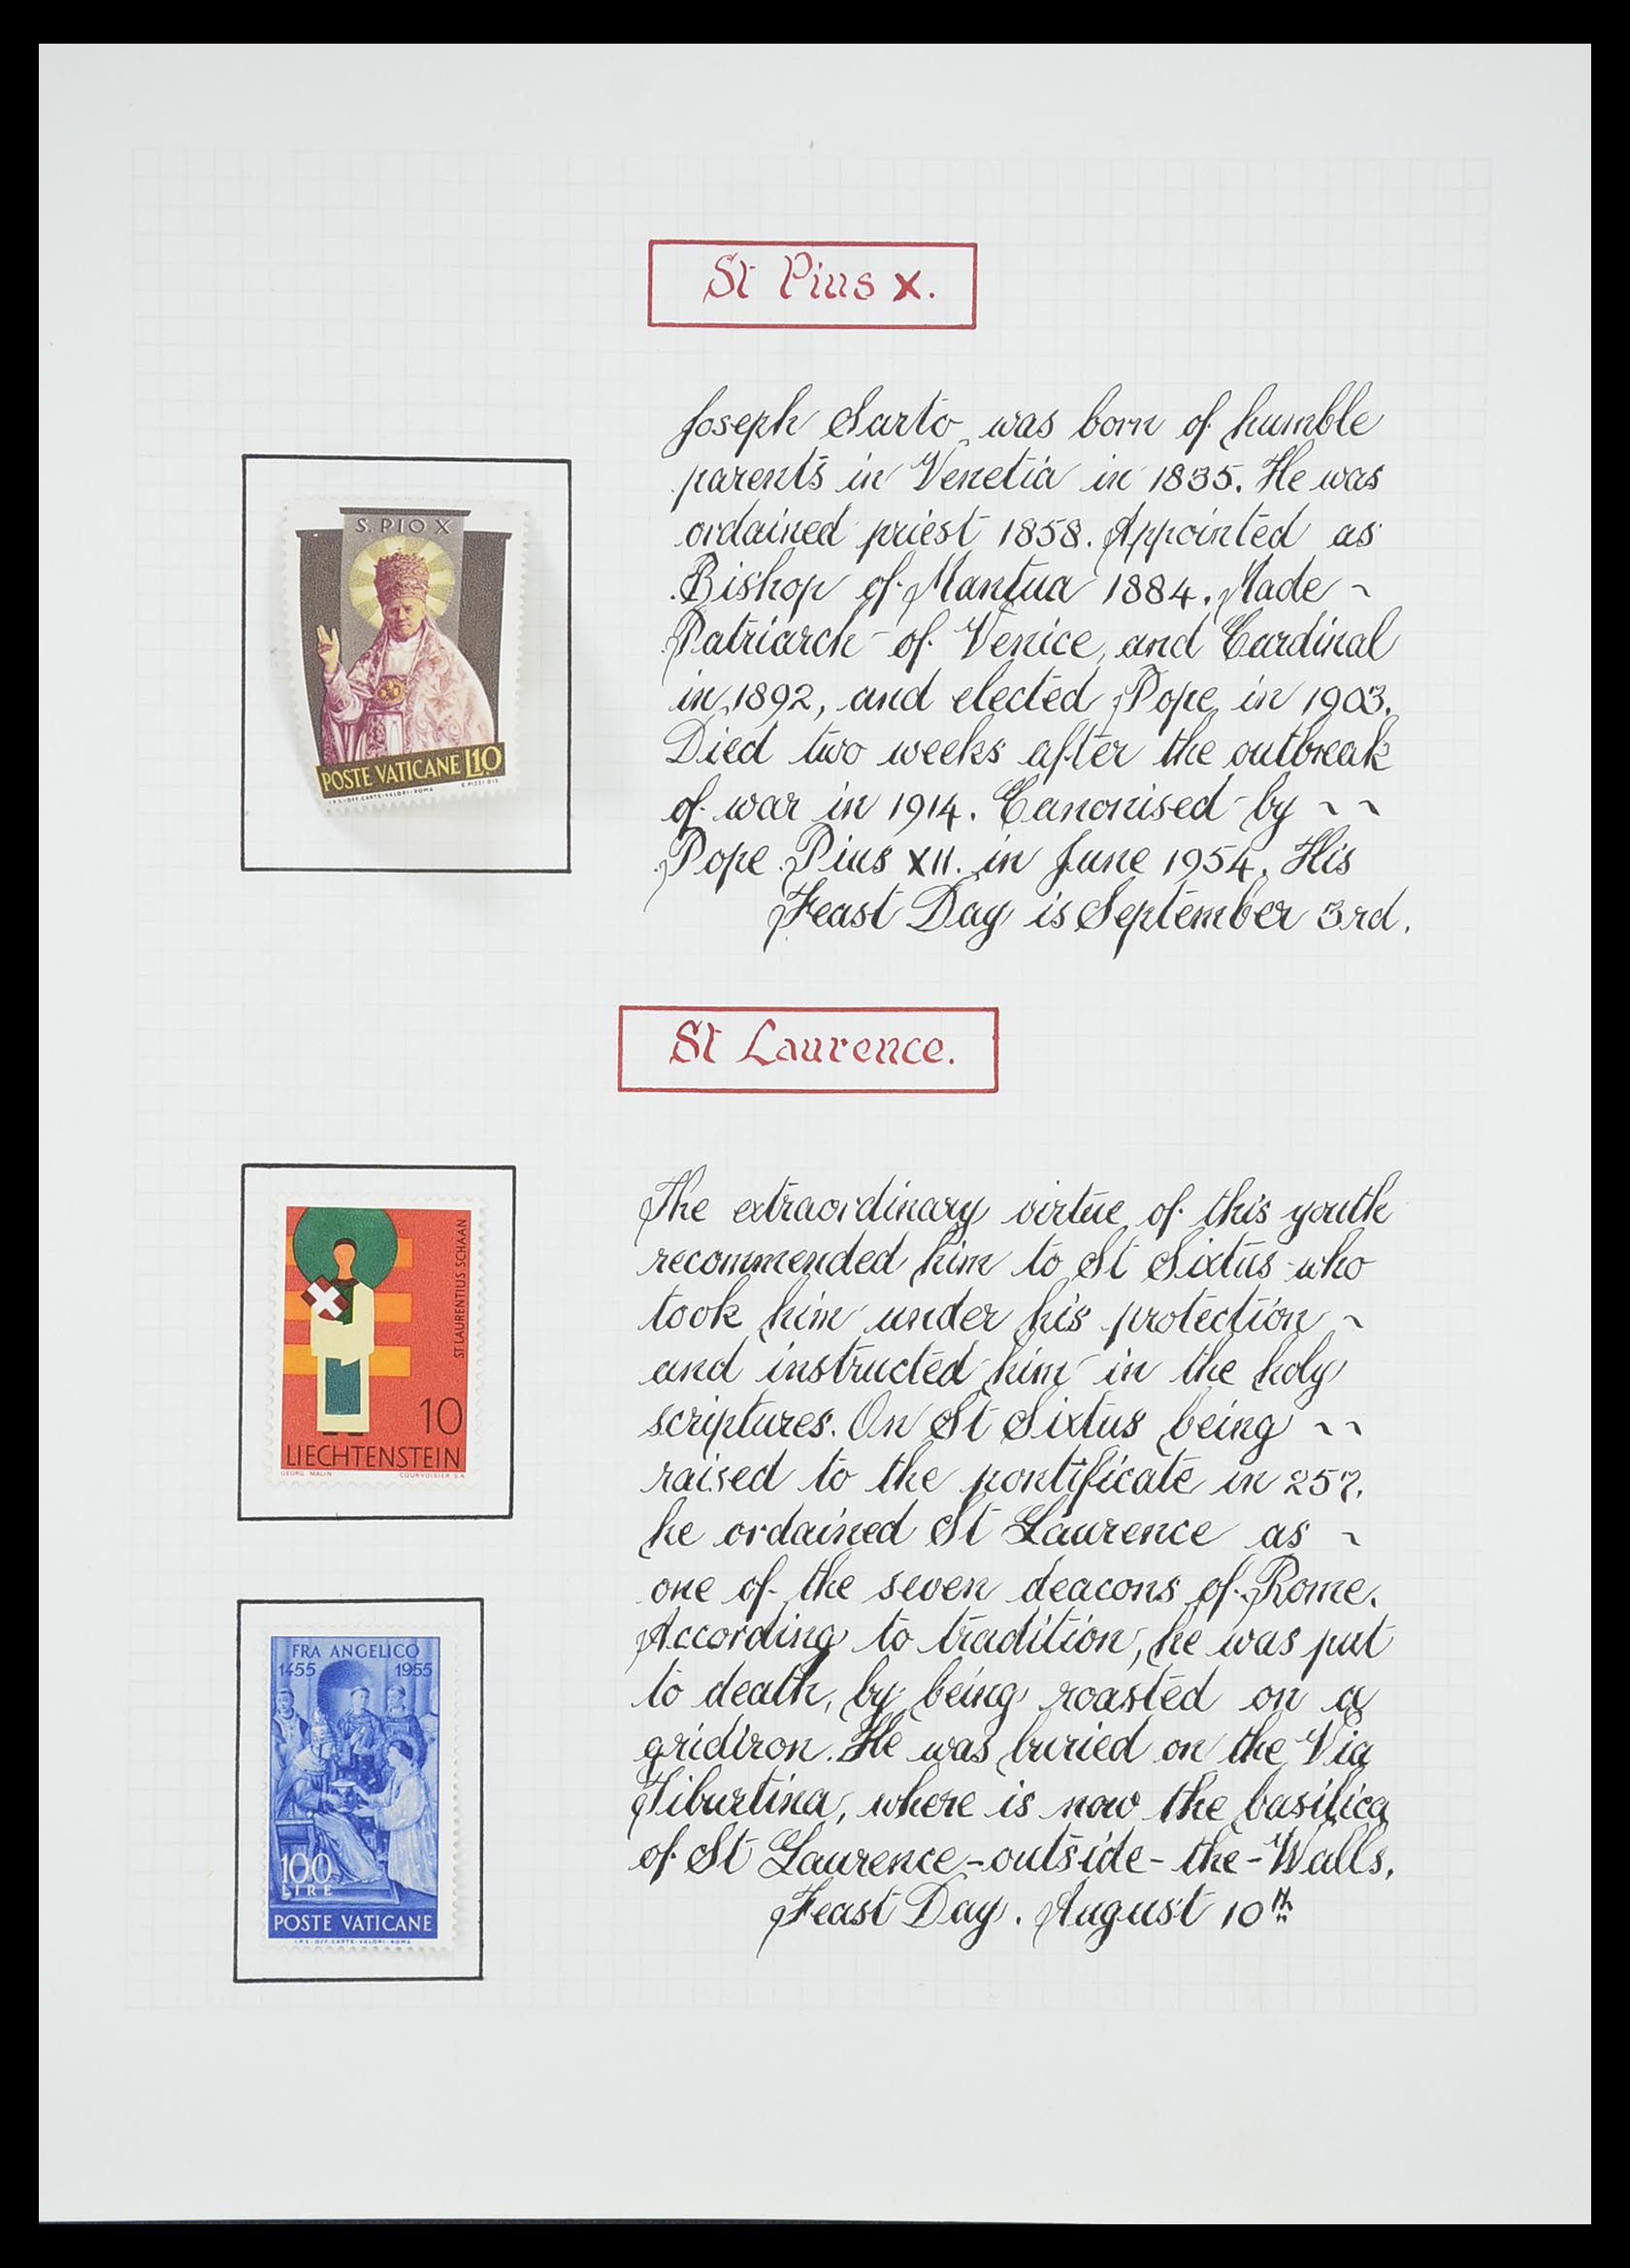 St Pius X.
Joseph Sarto was born of humble
parents in Venetia in 1835. He was
ordained priest 1858. Appointed as
Bishop of Mantua 1884. Made ~
Patriarch of Venice, and Cardinal
in 1892, and elected Pope in 1903.
Died two weeks after the outbreak
of war in 1914. Canonised by ~ ~
Pope Pius XII. in June 1954. His
Feast Day is September 3rd.
S. PIO X
POSTE VATICANE L10
I.P.S.-OFF.CARTE-VALORI-ROMA E.PIZZI DIS.
St Laurence.
The extraordinary virtue of this youth
recommended him to St Sixtus who
took him under his protection ~
and instructed him in the holy
scriptures. On St Sixtus being ~ ~
raised to the pontificate in 257.
he ordained St Laurence as ~
one of the seven deacons of Rome.
According to tradition, he was put
to death, by being roasted on a
gridiron. He was buried on the Via
Tiburtina, where is now the basilica
of St Laurence-outside-the-Walls.
Feast Day. August 10th
ST. LAURENTIUS SCHAAN
10
LIECHTENSTEIN
GEORG MALIN COURVOISIER S.A.
FRA ANGELICO
1455 1955
100
LIRE
POSTE VATICANE
I.P.S.-OFF.CARTE-VALORI-ROMA